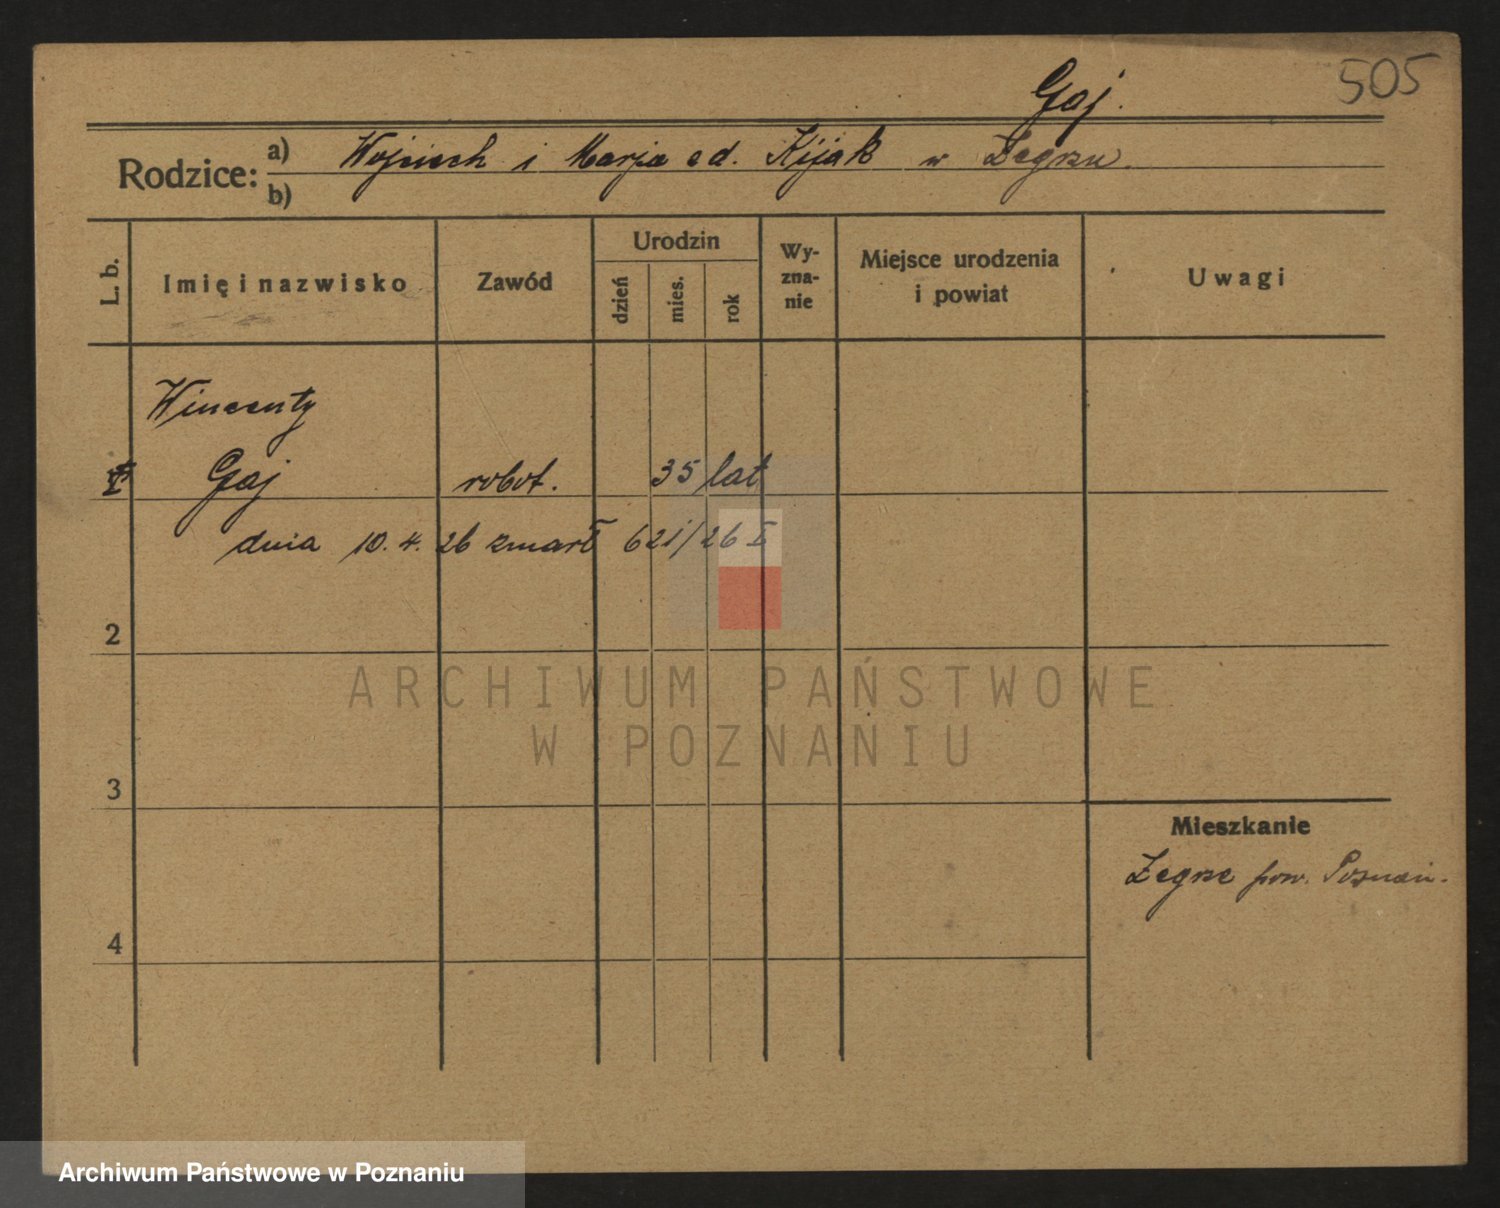 505
Gaj.
Rodzice: a) Wojciech i Marja ed. Kijak w Zegrzu.
b)
L. b.
Imię i nazwisko
Zawód
Urodzin
dzień
mies.
rok
Wy-
zna-
nie
Miejsce urodzenia
i powiat
Uwagi
Wincenty
Gaj robot. 35 lat
dnia 10. 4. 26 zmarł 621/26 I
2
3
4
Mieszkanie
Zegrze pow. Poznań.
ARCHIWUM PAŃSTWOWE
W POZNANIU
Archiwum Państwowe w Poznaniu